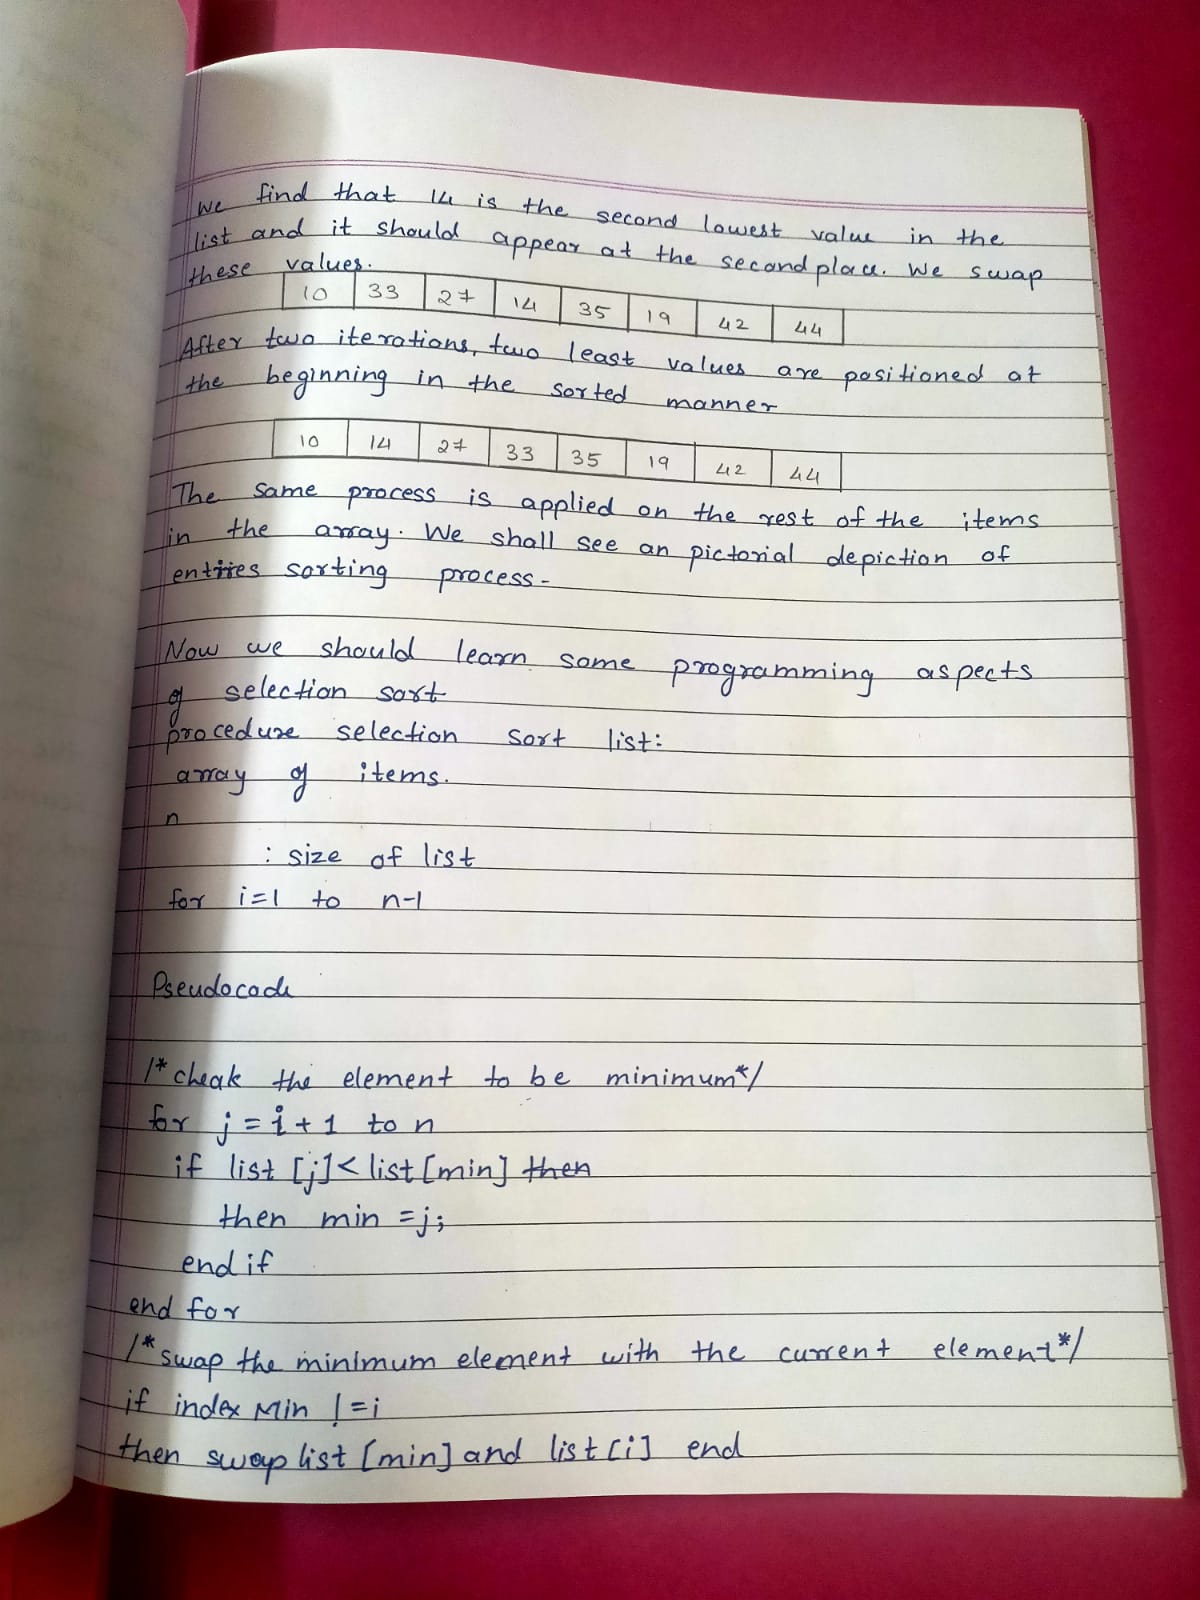 We find that 14 is the second lowest value in the
list and it should appear at the second place. We swap
these values.
10 33 27 14 35 19 42 44
After two iterations, two least values are positioned at
the beginning in the sorted manner
10 14 27 33 35 19 42 44
The same process is applied on the rest of the items
in the array. We shall see an pictorial depiction of
entires sorting process-
Now we should learn some programming aspects
of selection sort
procedure selection sort list:
array of items.
n
: size of list
for i=1 to n-1
Pseudocode
/* cheak the element to be minimum*/
for j = i + 1 to n
if list [j] < list [min] then
then min = j;
end if
end for
/* swap the minimum element with the current element*/
if index Min != i
then swap list [min] and list [i] end